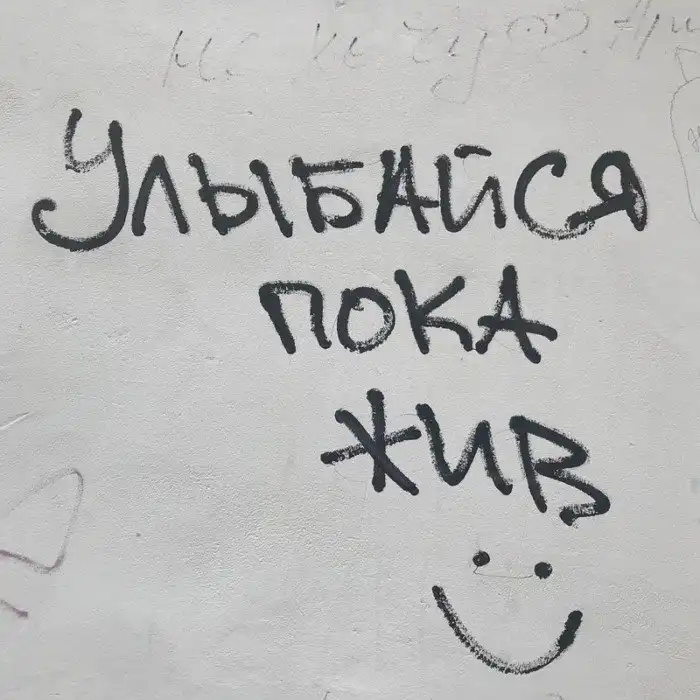 Улыбайся
пока
жив